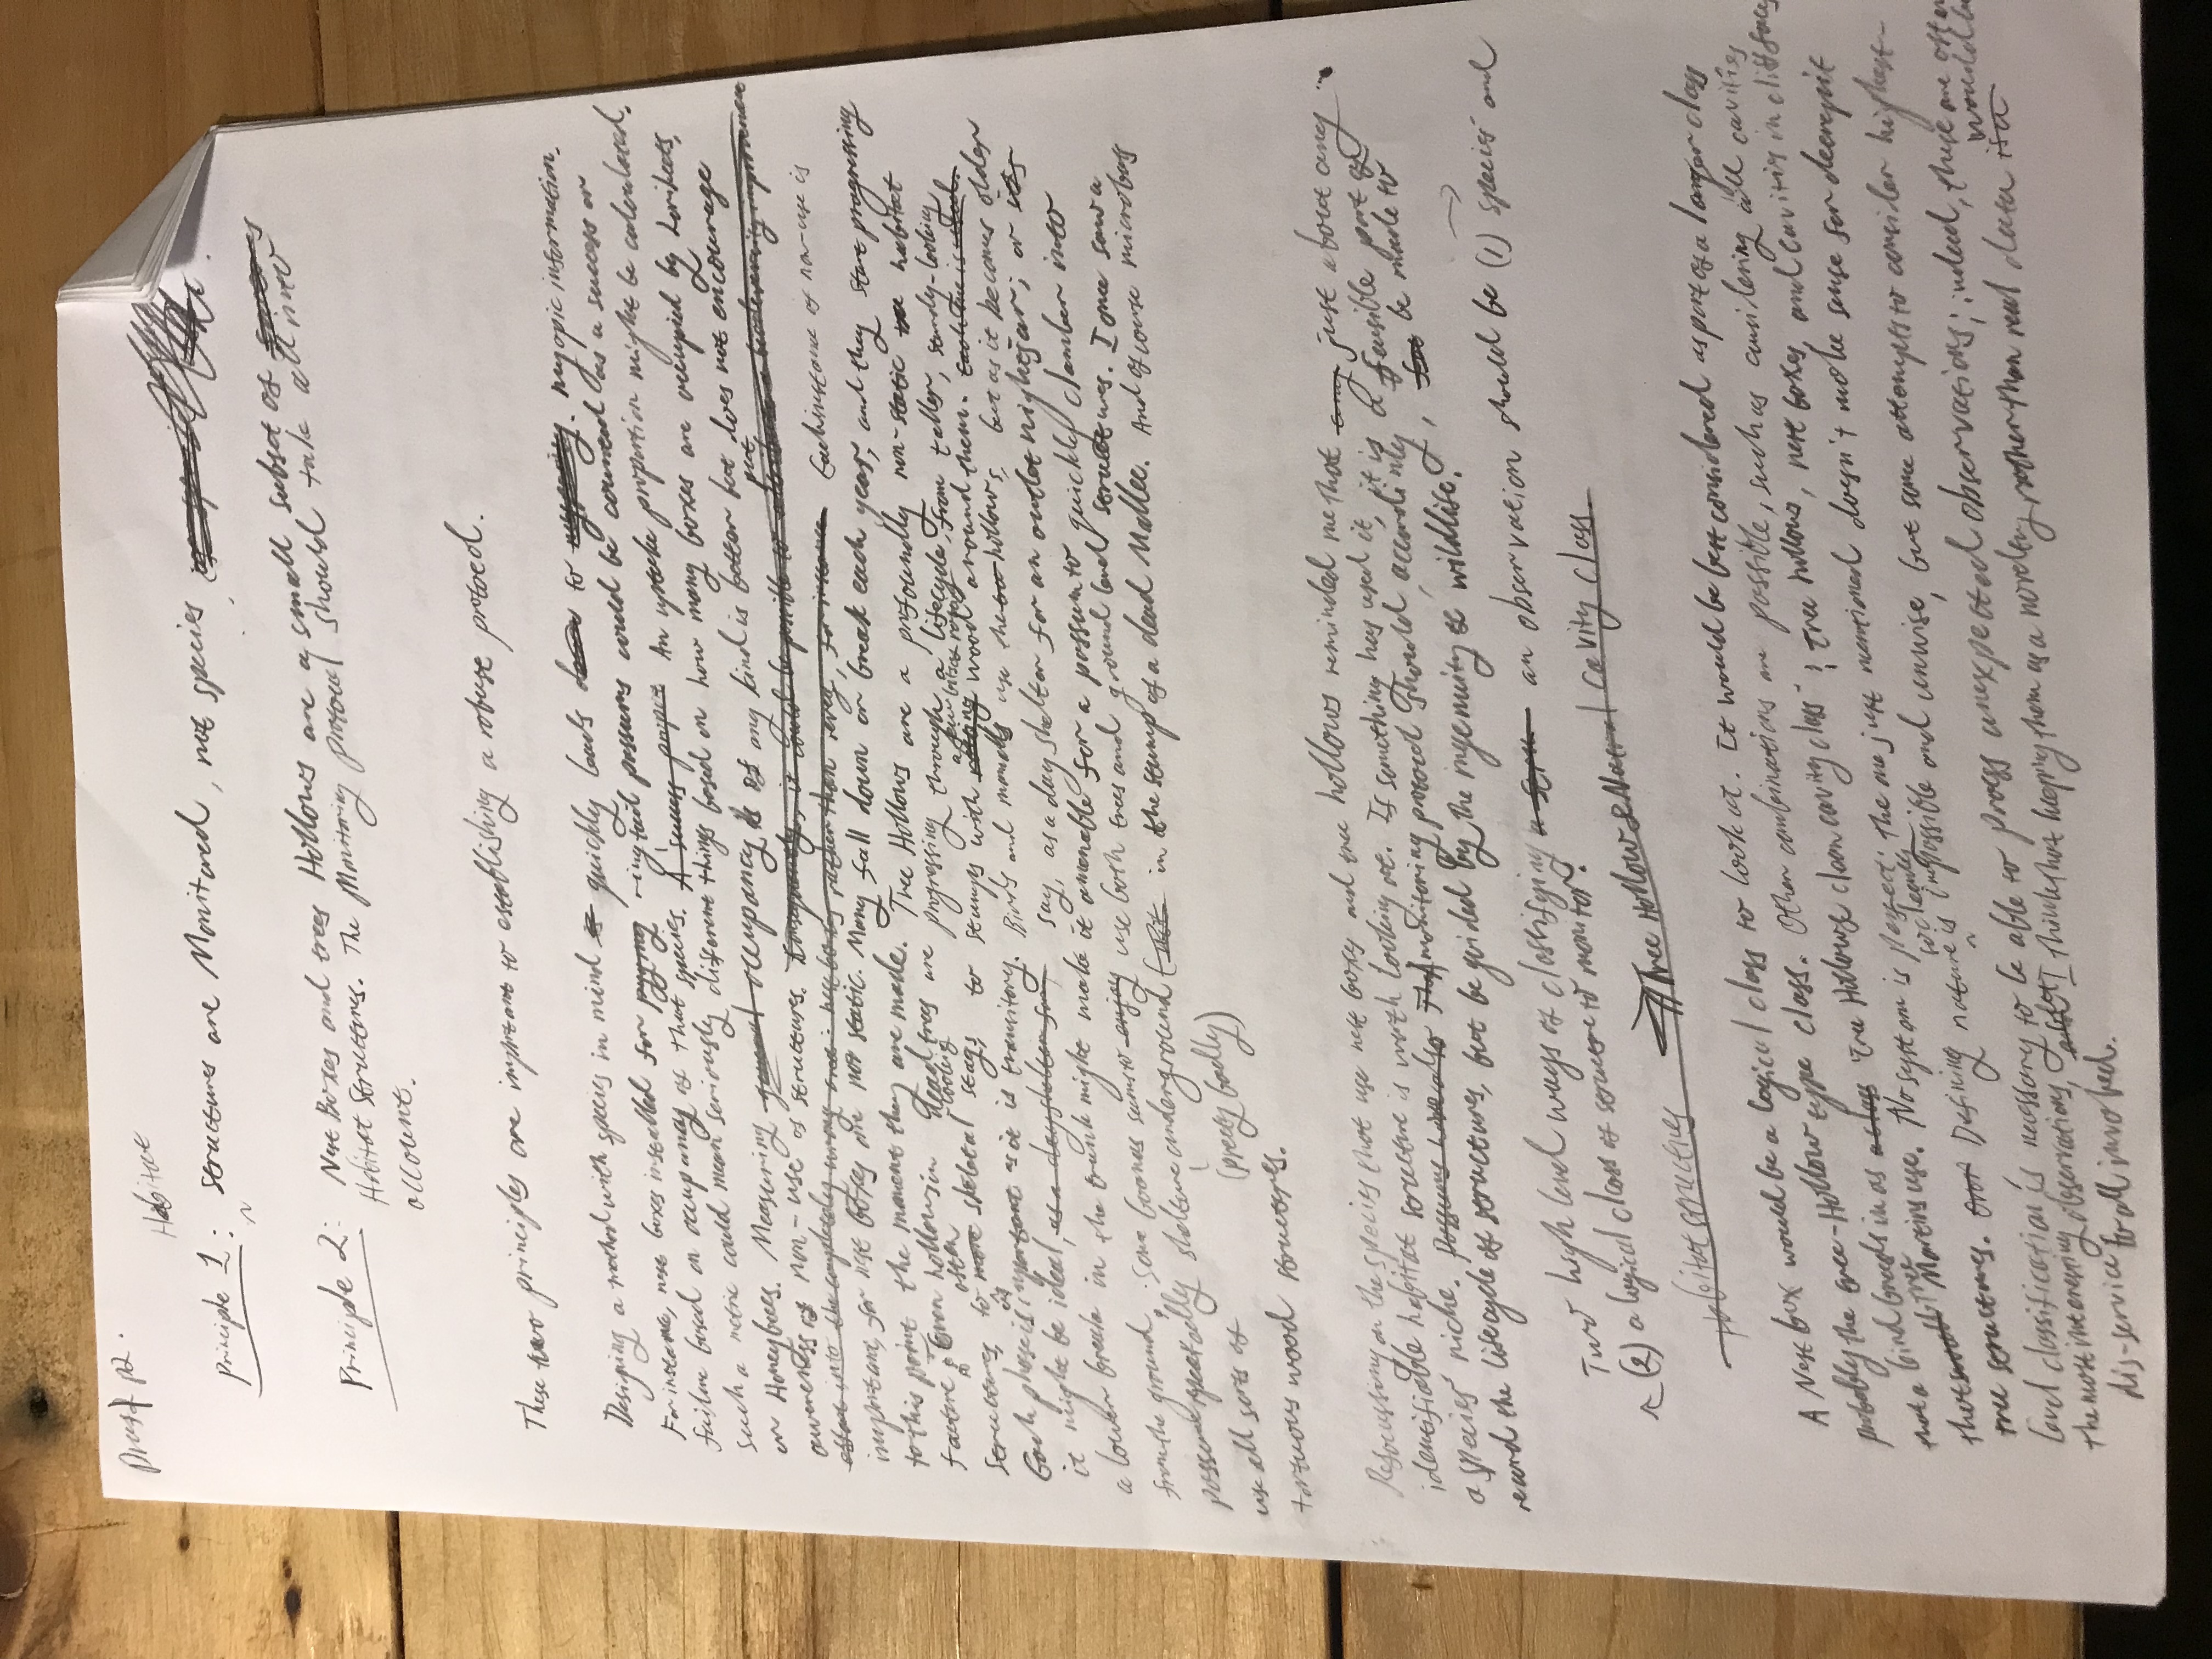 Draft p2.
Habitat
Principle 1: Structures are Monitored, not species
Principle 2: Nest Boxes and trees Hollows are a small subset of
Habitat Structures. The Monitoring Protocol should take all into
account.
These two principles are important to establishing a robust protocol.
Designing a method with species in mind quickly leads to myopic information.
For instance, nest boxes installed for pygmy ringtail possums could be counted as a success or
failure based on occupancy of that species. A success proport An uptake proportion might be calculated.
Such a metric could mean seriously different things based on how many boxes are occupied by Lorikeets,
or Honeybees. Measuring general occupancy of any kind is better but does not encourage
awareness of non-use of structures. Consequently, it could be possible to attribute a biodiversity improvement
put
effort into the completely wrong area: nest boxes rather than reveg, for instance Each instance of non-use is
important, for nest boxes are not static. Many fall down or break each year, and they start progressing
to this point the moment they are made. Tree Hollows are a profoundly non-static habitat
facture. Even hollows in dead trees are progressing through a lifecycle, from taller, sturdy-looking
structures, to more often skeletal looking stags, to stumps with rotting a few bits of rotting wood around them. Each one is used.
Each phase is as important as it is transitory. Birds and mamalls use the hollows, but as it becomes older
it might be ideal, as a day shelter for, say, as a day shelter for an owlet nightjar; or its
a lower break in the trunk might make it amenable for a possum to quickly clamber into
from the ground. Some goannas seems to enjoy use both trees and ground level structures. I once saw a
possum shelture underground (But in the stump of a dead Mallee. And of course microbats
(pretty badly)
use all sorts of
tortuous wood structures.
Refocussing on the species that use nest boxes and tree hollows reminded me that any just about any ...
identifiable habitat structure is worth looking at. If something has used it, it is a feasible part of
a species' niche. Possums have also That monitoring protocol should, accordinly, for be made to
record the lifecycle of structures, but be guided by the ingenuity of wildlife.
Two high level ways of classifying a stru an observation should be (1) species and
(2) a logical class of structure to monitor.
Habitat structures Tree Hollow & Natural Cavity class
A Nest box would be a logical class to look at. It would be best considered as part of a larger class
probably the tree-Hollow type class. Other combinations are possible, such as considering all cavities
that a bird breeds in as a class 'Tree Hollow & clean cavity class'; Tree hollows, nest boxes, and cavities in cliff faces
that swall Tree Martins use. No system is perfect: The one just mentioned doesn't make sense for decrepit
tree structures. Over Defining nature so cleanly is impossible and unwise, but some attempts to consider highest-
level classification is necessary to be able to process unexpected observations; indeed, these are often
the most interesting observations, and but I think that keeping them as a novelty rather than real data is a would be
dis-service to all involved.